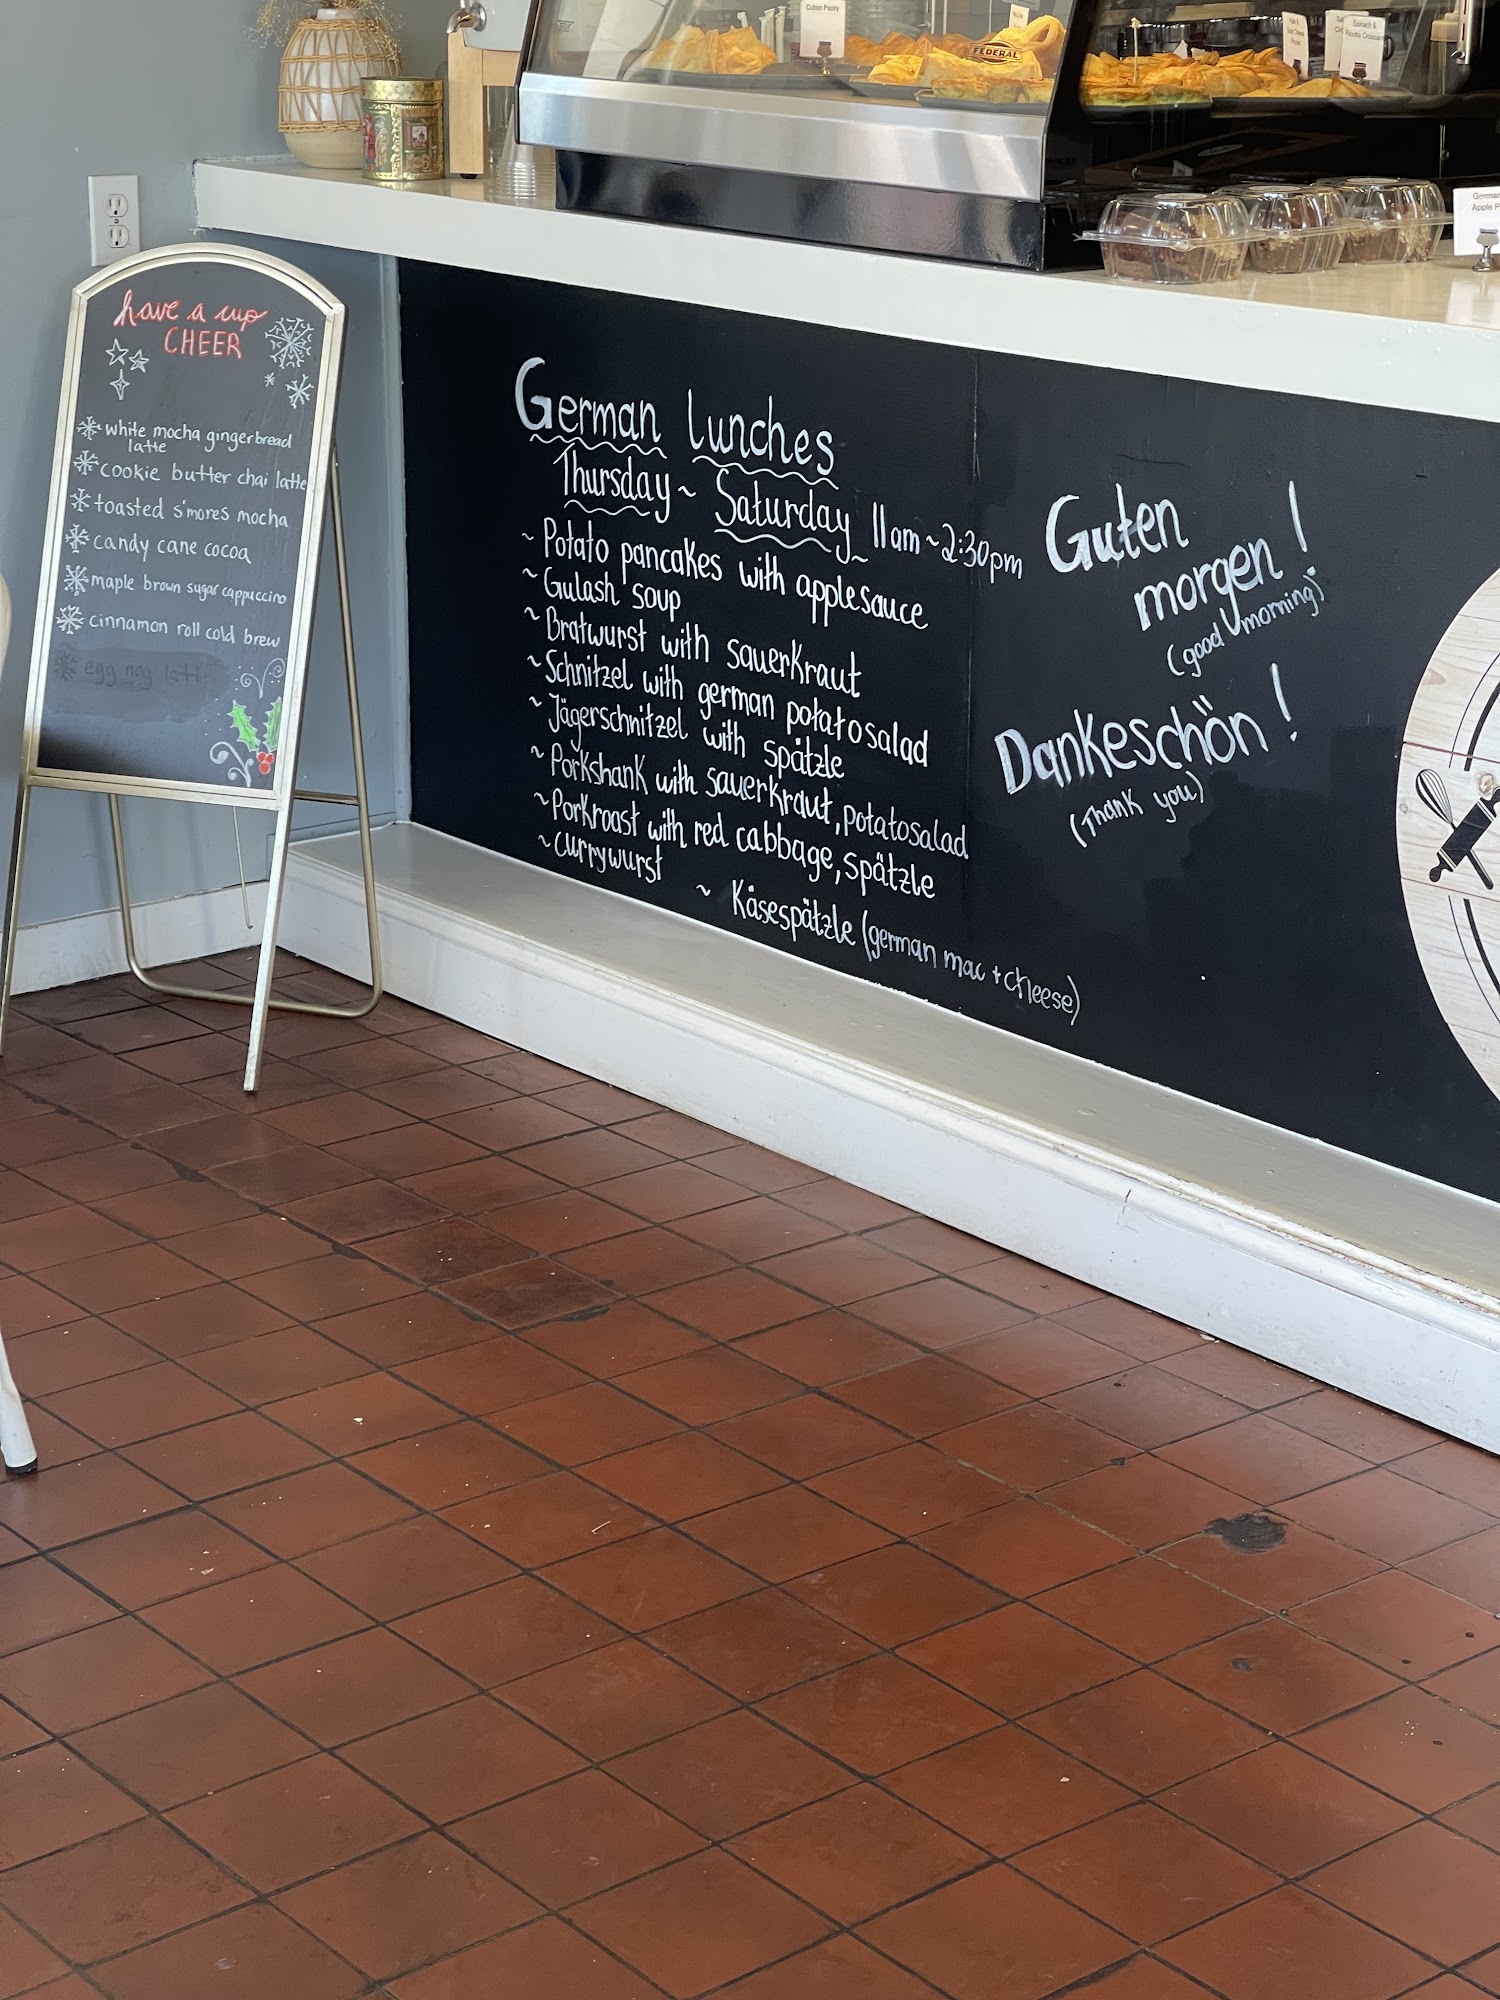 Cuban Pastry
FEDERAL
Spinach &
Ricotta Croissant
German
Apple P
have a cup
CHEER
white mocha gingerbread
latte
cookie butter chai latte
toasted s'mores mocha
candy cane cocoa
maple brown sugar cappuccino
cinnamon roll cold brew
egg nog latt
German Lunches
Thursday ~ Saturday 11am ~ 2:30pm
~ Potato pancakes with applesauce
~ Gulash soup
~ Bratwurst with sauerkraut
~ Schnitzel with german potatosalad
~ Jägerschnitzel with spätzle
~ Porkshank with sauerkraut, potatosalad
~ Porkroast with red cabbage, spätzle
~ Currywurst
~ Käsespätzle (german mac + cheese)
Guten
morgen!
(good morning)
Dankeschön!
(Thank you)